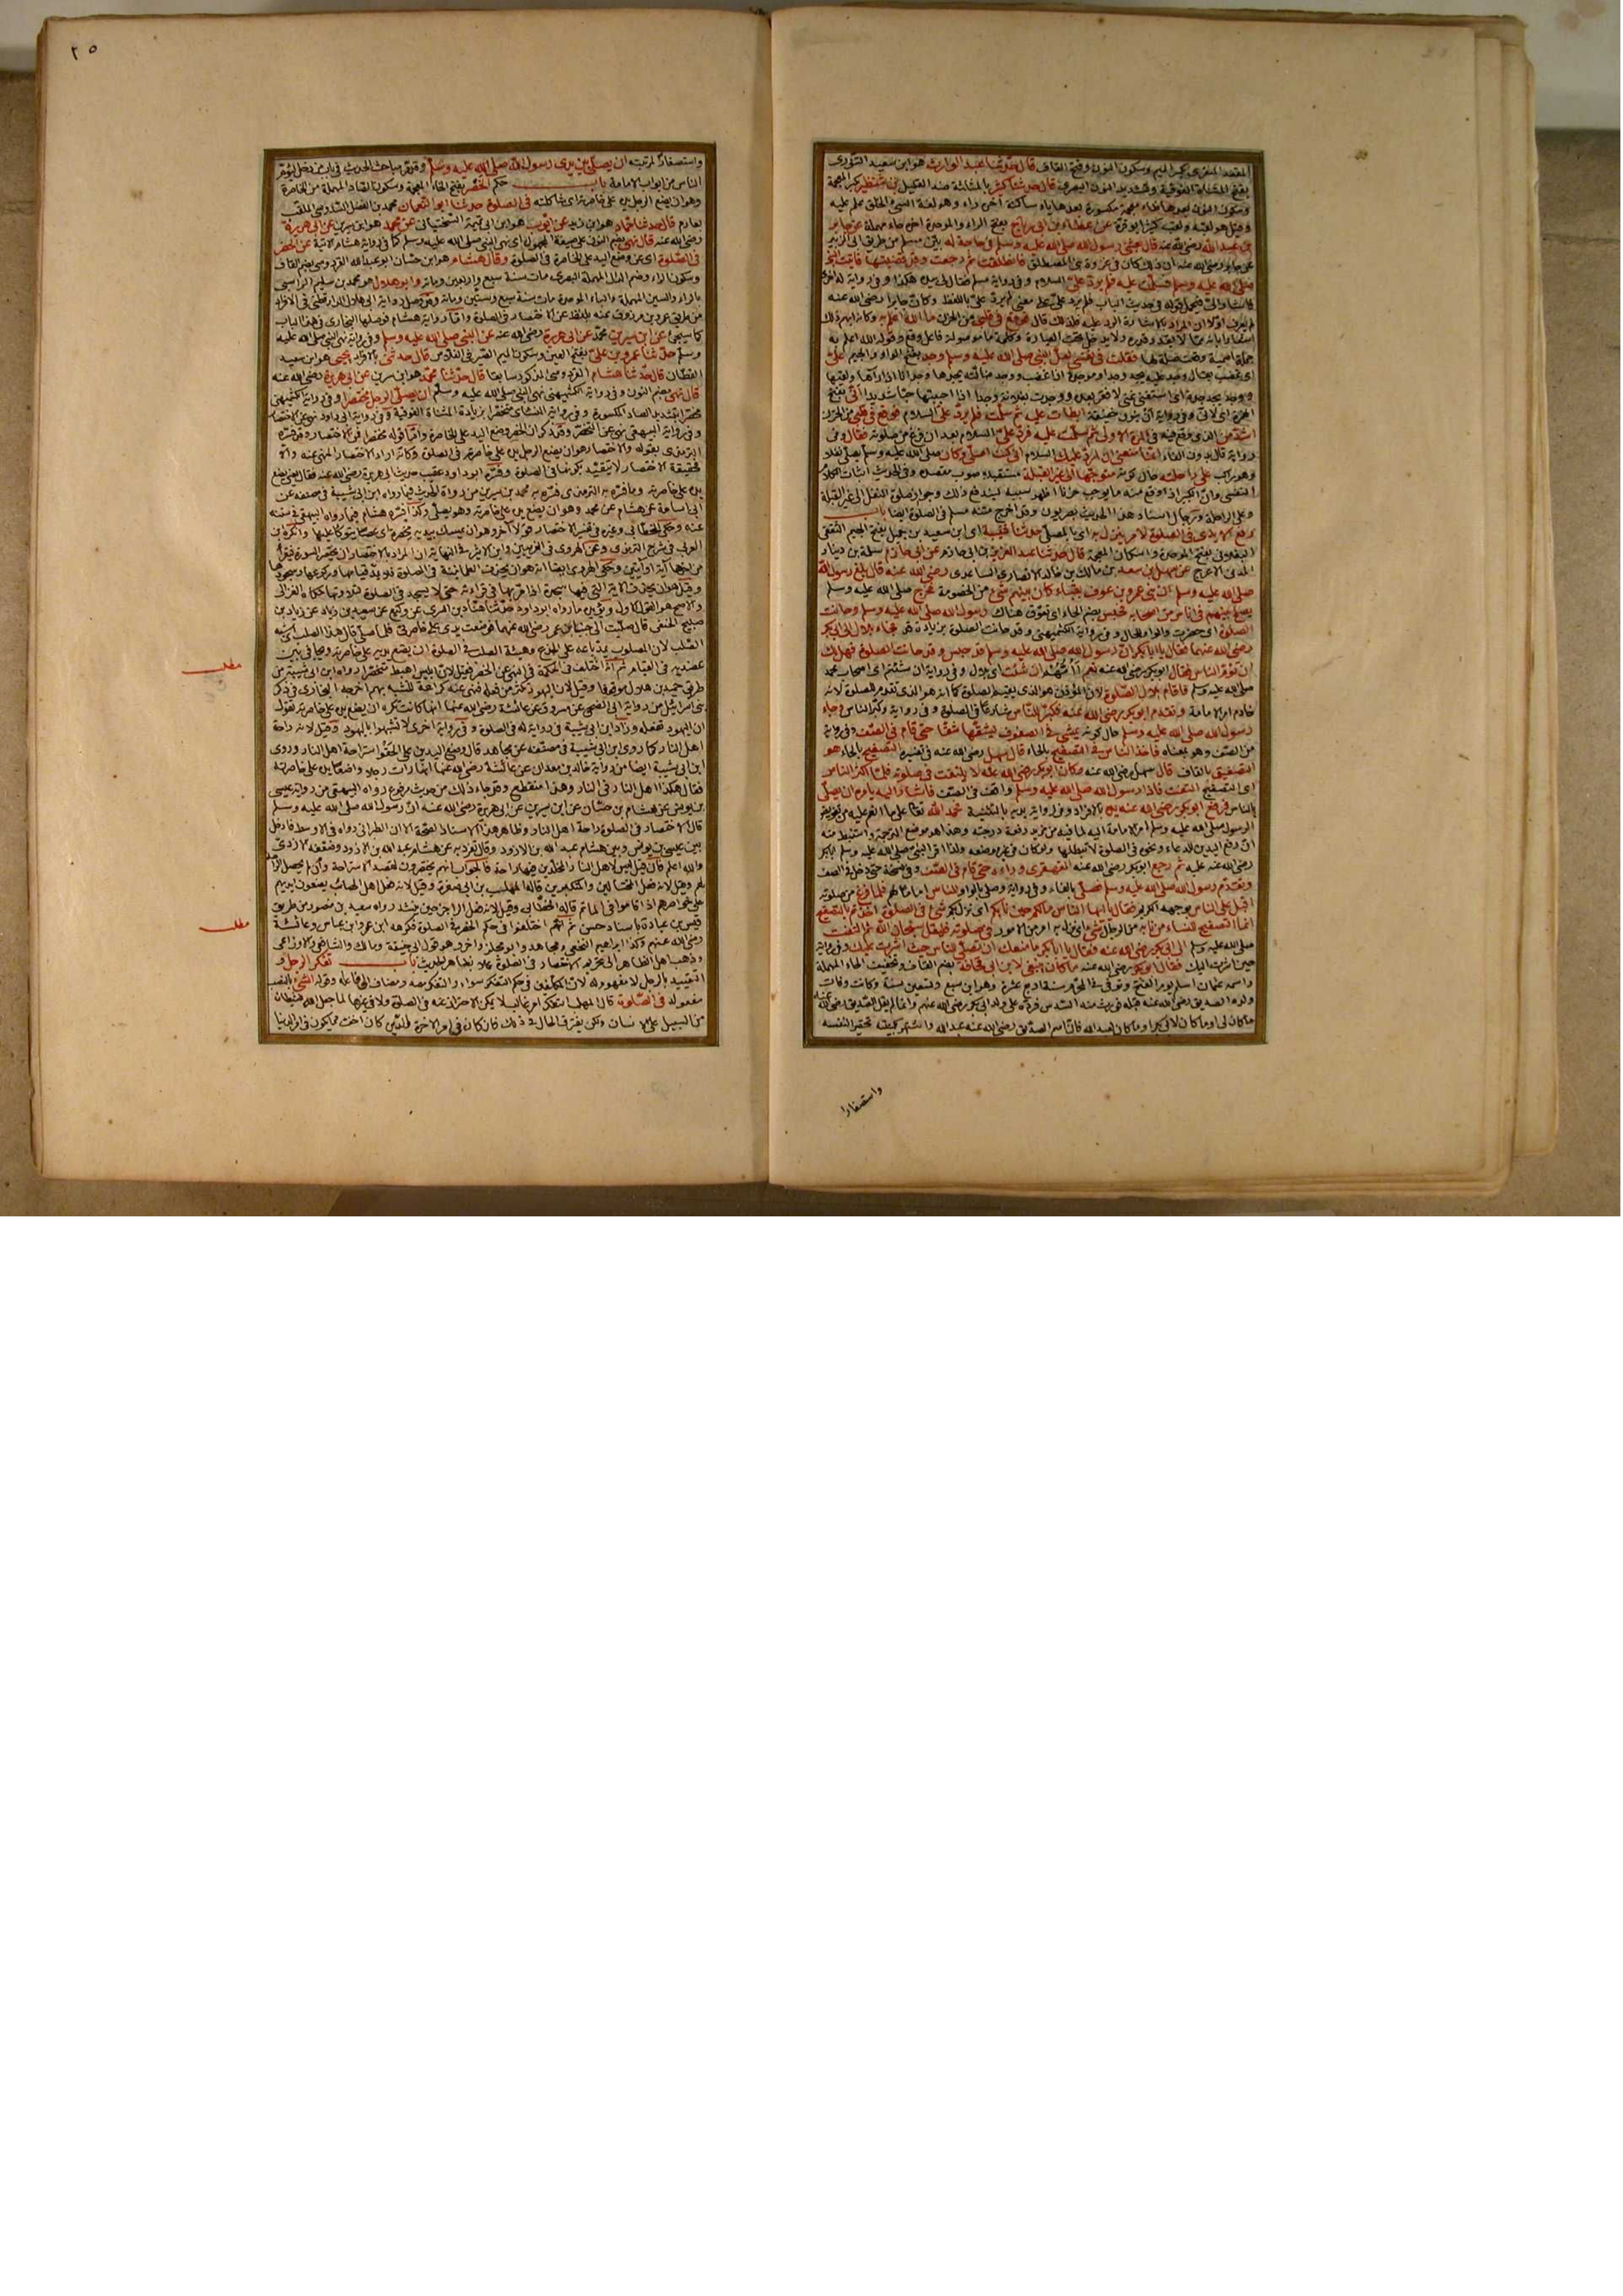 المقعد المنقرى بكسر الميم وسكون النون وفتح القاف قال حدثنا عبد الوارث هو ابن سعيد التنورى
بفتح المثناة الفوقية وتشديد النون البصرى قال حدثنا كثير بالمثلثة ضد القليل بن شنظير بكسر المعجمة
وسكون النون بعدها ظاء معجمة مكسورة بعدها ياء ساكنة آخره راء وهو لغة السيئ الخلق علم عليه
وقيل هو لقبه وكنيته ابو قرة عن عطاء بن ابى رباح بفتح الراء والموحدة آخره حاء مهملة عن جابر
بن عبد الله رضى الله عنه قال بعثنى رسول الله صلى الله عليه وسلم فى حاجة له بين مسلم من طريق ابى الزبير
عن جابر رضى الله عنه ان ذلك كان فى غزوة بنى المصطلق فانطلقت ثم رجعت وقد قضيتها فأتيت النبى
صلى الله عليه وسلم فسلمت عليه فلم يرد على السلام وفى رواية مسلم فقال لى بيده هكذا وفى رواية له اخرى
فاشار الى فيحمل قوله فى حديث الباب فلم يرد على على معنى لم يرد على باللفظ وكان جابرا رضى الله عنه
لم يعرف اولا ان المراد بالاشارة الرد عليه فلذلك قال فوقع فى قلبى من الحزن ما الله اعلم به وكانه ابهم ذلك
اشعارا بانه مما لا يقدر قدره ولا يدخل تحت العبارة وكلمة ما موصولة فاعل وقع وقوله الله اعلم به
جملة اسمية وقعت صلة لها فقلت فى نفسى لعل النبى صلى الله عليه وسلم وجد بفتح الواو والجيم على
اى غضب يقال وجد عليه يجد وجدا وموجدة اذا غضب ووجد ضالته يجدها وجدانا اذا رآها ولقيها
ووجد يجد جدة اى استغنى غنى لا فقر بعده ووجدت بفلانة وجدا اذا احببتها حبا شديدا انى بفتح
الهمزة اى لانى وفى رواية ان بنون خفيفة ابطأت عليه ثم سلمت فلم يرد على السلام فوقع فى قلبى من الحزن
اشد من الذى وقع فيه فى المرة الاولى ثم سلمت عليه فرد على السلام بعد ان فرغ من صلوته فقال وفى
رواية قال بدون الفاء انما منعنى ان ارد عليك السلام انى كنت اصلى وكان صلى الله عليه وسلم يصلى نفلا
وهو راكب على راحلته حال كونه متوجها الى غير القبلة مستقبلا صوب مقصده وفى الحديث اثبات الكلام
النفسى وان الكبير اذا وقع منه ما يوجب حزنا اظهر سببه ليندفع ذلك وجواز صلوة النفل الى غير القبلة
وعلى الراحلة ورجال اسناد هذا الحديث بصريون وقد اخرج متنه مسلم فى الصلوة ايضا باب
رفع الايدى فى الصلوة لامر ينزل به اى بالمصلى حدثنا قتيبة اى ابن سعيد بن جميل بفتح الجيم الثقفى
البغلانى بفتح الموحدة واسكان المعجمة قال حدثنا عبد العزيز بن ابى حازم عن ابى حازم سلمة بن دينار
المدنى الاعرج عن سهل بن سعد بن مالك بن خالد الانصارى الساعدى رضى الله عنه قال بلغ رسول الله
صلى الله عليه وسلم ان بنى عمرو بن عوف بقباء كان بينهم شىء من الخصومة فخرج صلى الله عليه وسلم
يصلح بينهم فى اناس من اصحابه فحبس بضم الحاء اى تعوق هناك رسول الله صلى الله عليه وسلم وحانت
الصلوة اى حضرت والواو للحال وفى رواية الكشميهنى وقد حانت الصلوة بزيادة قد فجاء بلال الى ابى بكر
رضى الله عنهما فقال يا ابا بكر ان رسول الله صلى الله عليه وسلم قد حبس وقد حانت الصلوة فهل لك
ان تؤم الناس فقال ابو بكر رضى الله عنه نعم ان شئت اى بلال وفى رواية ان شئتم اى اصحاب محمد
صلى الله عليه وسلم فاقام بلال الصلوة لان المؤذن هو الذى يقيم الصلوة كما انه هو الذى تقدم للصلوة لانه
خادم امر الامامة وتقدم ابو بكر رضى الله عنه فكبر للناس شارعا فى الصلوة وفى رواية وكبر الناس وجاء
رسول الله صلى الله عليه وسلم حال كونه يمشى فى الصفوف يشقها شقا حتى قام فى الصف وفى رواية
من الصف وهو بمعناه فاخذ الناس فى التصفيح بالحاء قال سهل رضى الله عنه فى تفسيره التصفيح بالحاء هو
التصفيق بالقاف قال سهل رضى الله عنه وكان ابو بكر رضى الله عنه لا يلتفت فى صلوته فلما اكثر الناس
اى التصفيح التفت فاذا رسول الله صلى الله عليه وسلم واقف فى الصف فاشار اليه يأمره ان يصلى
بالناس فرفع ابو بكر رضى الله عنه يده بالافراد وفى رواية يديه بالتثنية فحمد الله تعالى على ما انعم عليه من تفويض
الرسول صلى الله عليه وسلم امر الامامة اليه لما فيه من مزيد رفعة درجته وهذا هو موضع الترجمة واستنبط منه
ان رفع اليدين للدعاء ونحوه فى الصلوة لا تبطلها ولو كان فى غير موضعه ولذا اقر النبى صلى الله عليه وسلم ابا بكر
رضى الله عنه عليه ثم رجع ابو بكر رضى الله عنه القهقرى وراءه حتى قام فى الصف وفى نسخة حتى دخل فى الصف
وتقدم رسول الله صلى الله عليه وسلم فصلى بالفاء وفى رواية وصلى بالواو للناس اماما لهم فلما فرغ من صلوته
اقبل على الناس بوجهه الكريم فقال يا ايها الناس مالكم حين نابكم اى نزل بكم شىء فى الصلوة اخذتم بالتصفيح
انما التصفيح للنساء من نابه من الرجال شىء اى نزل به امر من الامور فى صلوته فليقل سبحان الله ثم التفت
صلى الله عليه وسلم الى ابى بكر رضى الله عنه فقال يا ابا بكر ما منعك ان تصلى للناس حيث اشرت عليك وفى رواية
حين اشرت اليك فقال ابو بكر رضى الله عنه ما كان ينبغى لابن ابى قحافة بضم القاف وتخفيف الحاء المهملة
واسمه عثمان اسلم يوم الفتح وتوفى فى المحرم سنة اربع عشرة وهو ابن سبع وتسعين سنة وكانت وفات
ولده الصديق رضى الله عنه قبله فورث منه السدس فرده على ولد ابى بكر رضى الله عنهم وانما لم يقل الصديق رضى الله عنه
ما كان لى او ما كان لابى بكر او ما كان لعبد الله فان اسم الصديق رضى الله عنه عبد الله واشتهر بكنيته تحقيرا لنفسه
واستصغارا
٢٥
واستصغارا لمرتبته ان يصلى بين يدى رسول الله صلى الله عليه وسلم وقد مر مباحث الحديث فى باب من دخل ليؤم
الناس من ابواب الامامة باب حكم الخصر بفتح الخاء المعجمة وسكون الصاد المهملة من الخاصرة
وهو ان يضع الرجل يده على خاصرته اى شاكلته فى الصلوة حدثنا ابو النعمان محمد بن الفضل السدوسى الملقب
بعارم قال حدثنا حماد هو ابن زيد عن ايوب هو ابن ابى تميمة السختيانى عن محمد هو ابن سيرين عن ابى هريرة
رضى الله عنه قال نهى بضم النون على صيغة المجهول اى نهى النبى صلى الله عليه وسلم كما فى رواية هشام الآتية عن الخصر
فى الصلوة اى عن وضع اليد على الخاصرة فى الصلوة وقال هشام هو ابن حسان ابو عبد الله القردوسى بضم القاف
وسكون الراء وضم الدال المهملة البصرى مات سنة سبع واربعين ومائة وابو هلال هو محمد بن سليم الراسبى
بالراء والسين المهملة والباء الموحدة مات سنة سبع وستين ومائة وقد وصل رواية ابى هلال الدارقطنى فى الافراد
من طريق عمرو بن مرزوق عنه بلفظ عن الاختصار فى الصلوة واما رواية هشام فوصلها البخارى فى هذا الباب
كما سيجئ عن ابن سيرين محمد عن ابى هريرة رضى الله عنه عن النبى صلى الله عليه وسلم وفى رواية نهى النبى صلى الله عليه
وسلم حدثنا عمرو بن على بفتح العين وسكون الميم الصيرفى الفلاس قال حدثنى بالافراد يحيى هو ابن سعيد
القطان قال حدثنا هشام القردوسى المذكور سابقا قال حدثنا محمد هو ابن سيرين عن ابى هريرة رضى الله عنه
قال نهى بضم النون وفى رواية الكشميهنى نهى النبى صلى الله عليه وسلم ان يصلى الرجل مختصرا وفى رواية الكشميهنى
مخصرا بتشديد الصاد المكسورة وفى رواية النسائى متخصرا بزيادة المثناة الفوقية وفى رواية ابى داود نهى عن الاختصار
وفى رواية البيهقى نهى عن التخصر وقد ذكر ان الخصر وضع اليد على الخاصرة واما قوله مختصرا فمن الاختصار وقد فسره
الترمذى بقوله والاختصار هو ان يضع الرجل يده على خاصرته فى الصلوة وكأنه اراد الاختصار المنهى عنه والا
فحقيقة الاختصار لا تتقيد بكونها فى الصلوة وفسره ابو داود عقيب حديث ابى هريرة رضى الله عنه فقال يعنى يضع
يده على خاصرته وما فسره به الترمذى فسره به محمد بن سيرين من رواة الحديث فيما رواه ابن ابى شيبة فى مصنفه عن
ابى اسامة عن هشام عن محمد وهو ان يضع يده على خاصرته وهو يصلى وكذا فسره هشام فيما رواه البيهقى فى سننه
عنه وحكى الخطابى وغيره فى تفسير الاختصار قولا آخر وهو ان يمسك بيده مخصرة اى عصا يتوكأ عليها وانكره ابن
العربى فى شرح الترمذى وعن الهروى فى الغريبين وابن الاثير فى النهاية ان المراد بالاختصار ان يختصر السورة فيقرأ
من آخرها آية او آيتين وحكى الهروى ايضا انه هو ان يحذف الطمأنينة فى الصلوة فلا يمد قيامها وركوعها وسجودها
وقيل هو ان يحذف الآية التى فيها سجدة اذا مر بها فى قراءته حتى لا يسجد فى الصلوة لتلاوتها حكاه الغزالى
والاصح هو القول الاول ويؤيده ما رواه ابو داود حدثنا هناد بن السرى عن وكيع عن سعيد بن زياد عن زياد بن
صبيح الحنفى قال صليت الى جنب ابن عمر رضى الله عنهما فوضعت يدى على خاصرتى فلما صلى قال هذا الصلب اى شبه
الصلب لان المصلوب يمد باعه على الجذع وهيئة الصلب فى الصلوة ان يضع يديه على خاصرتيه ويجافى بين
عضديه فى القيام ثم انه اختلف فى الحكمة فى النهى عن الخصر فقيل لان ابليس اهبط متخصرا رواه ابن ابى شيبة من
طريق حميد بن هلال موقوفا وقيل لان اليهود تكثر من فعله فنهى عنه كراهة للتشبه بهم اخرجه البخارى فى ذكر
بنى اسرائيل من رواية ابى الضحى عن مسروق عن عائشة رضى الله عنها انها كانت تكره ان يضع يده على خاصرته تقول
ان اليهود تفعله وزاد ابن ابى شيبة فى رواية له فى الصلوة وفى رواية اخرى لا تشبهوا باليهود وقيل لانه راحة
اهل النار كما روى ابن ابى شيبة فى مصنفه عن مجاهد قال وضع اليدين على الحقو استراحة اهل النار وروى
ابن ابى شيبة ايضا من رواية خالد بن معدان عن عائشة رضى الله عنها انها رأت رجلا واضعا يده على خاصرته
فقال هكذا اهل النار فى النار وهذا منقطع وقد جاء ذلك من حديث مرفوع رواه البيهقى من رواية عيسى
بن يونس عن هشام بن حسان عن ابن سيرين عن ابى هريرة رضى الله عنه ان رسول الله صلى الله عليه وسلم
قال الاختصار فى الصلوة راحة اهل النار وظاهر هذا الاسناد الصحة الا ان الطبرانى رواه فى الاوسط فادخل
بين عيسى بن يونس وبين هشام عبد الله بن الازور وقال تفرد به عن هشام عبد الله بن الازور وضعفه الازدى
والله اعلم فان قيل ليس لاهل النار المخلدين فيها راحة فالجواب انهم يختصرون لقصد الاستراحة وان لم يحصل الراحة
لهم وقيل لانه فعل المختالين والمتكبرين قاله المهلب بن ابى صفرة وقيل لانه فعل اهل المصائب يضعون ايديهم
على خواصرهم اذا قاموا فى المأتم قاله الخطابى وقيل لانه فعل الراجز حين ينشد رواه سعيد بن منصور من طريق
قيس بن عباد باسناد حسن ثم انهم اختلفوا فى حكم الخصر فى الصلوة فكرهه ابن عمر وابن عباس وعائشة
رضى الله عنهم وكذا ابراهيم النخعى ومجاهد وابو مجلز وآخرون وهو قول ابى حنيفة ومالك والشافعى والاوزاعى
وذهب اهل الظاهر الى تحريم الاختصار فى الصلوة عملا بظاهر الحديث باب تفكر الرجل و
التقييد بالرجل لا مفهوم له لان المكلفين فى حكم التفكر سواء والتفكر مصدر مضاف الى فاعله وقوله الشىء بالنصب
مفعوله فى الصلوة قال المهلب التفكر امر غالب لا يمكن الاحتراز عنه فى الصلوة ولا فى غيرها لما جعل الله للشيطان
من السبيل على الانسان ولكن يفترق الحال فى ذلك فان كان فى امر الآخرة والدين كان اخف مما يكون فى امر الدنيا
مطلب
مطلب